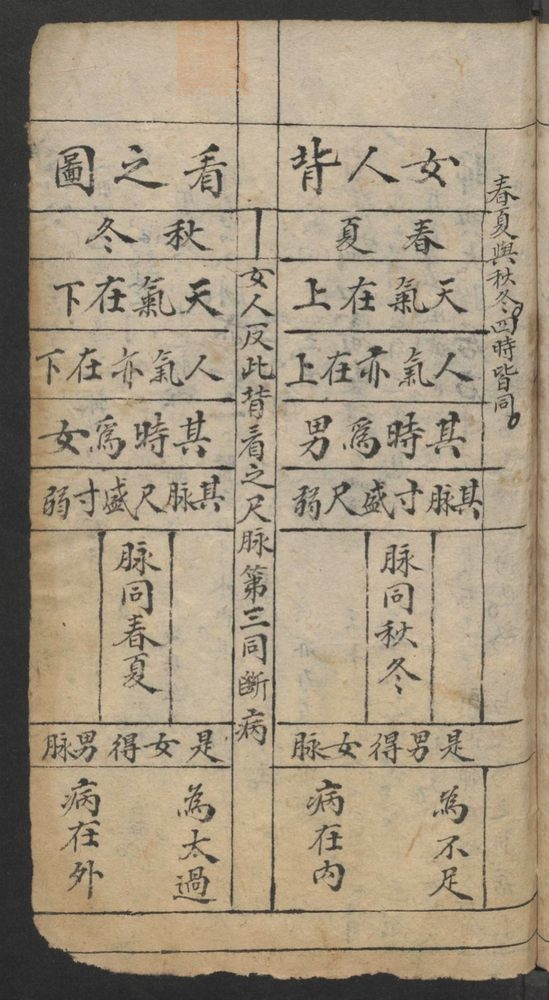 春夏與秋冬四時皆同
女人背
看之圖
春夏
天氣在上
人氣亦在上
其時為男
其脉寸盛尺弱
脉同秋冬
是男得女脉
為不足
病在内
女人反此背看之尺脉第三同斷病
秋冬
天氣在下
人氣亦在下
其時為女
其脉尺盛寸弱
脉同春夏
是女得男脉
為太過
病在外